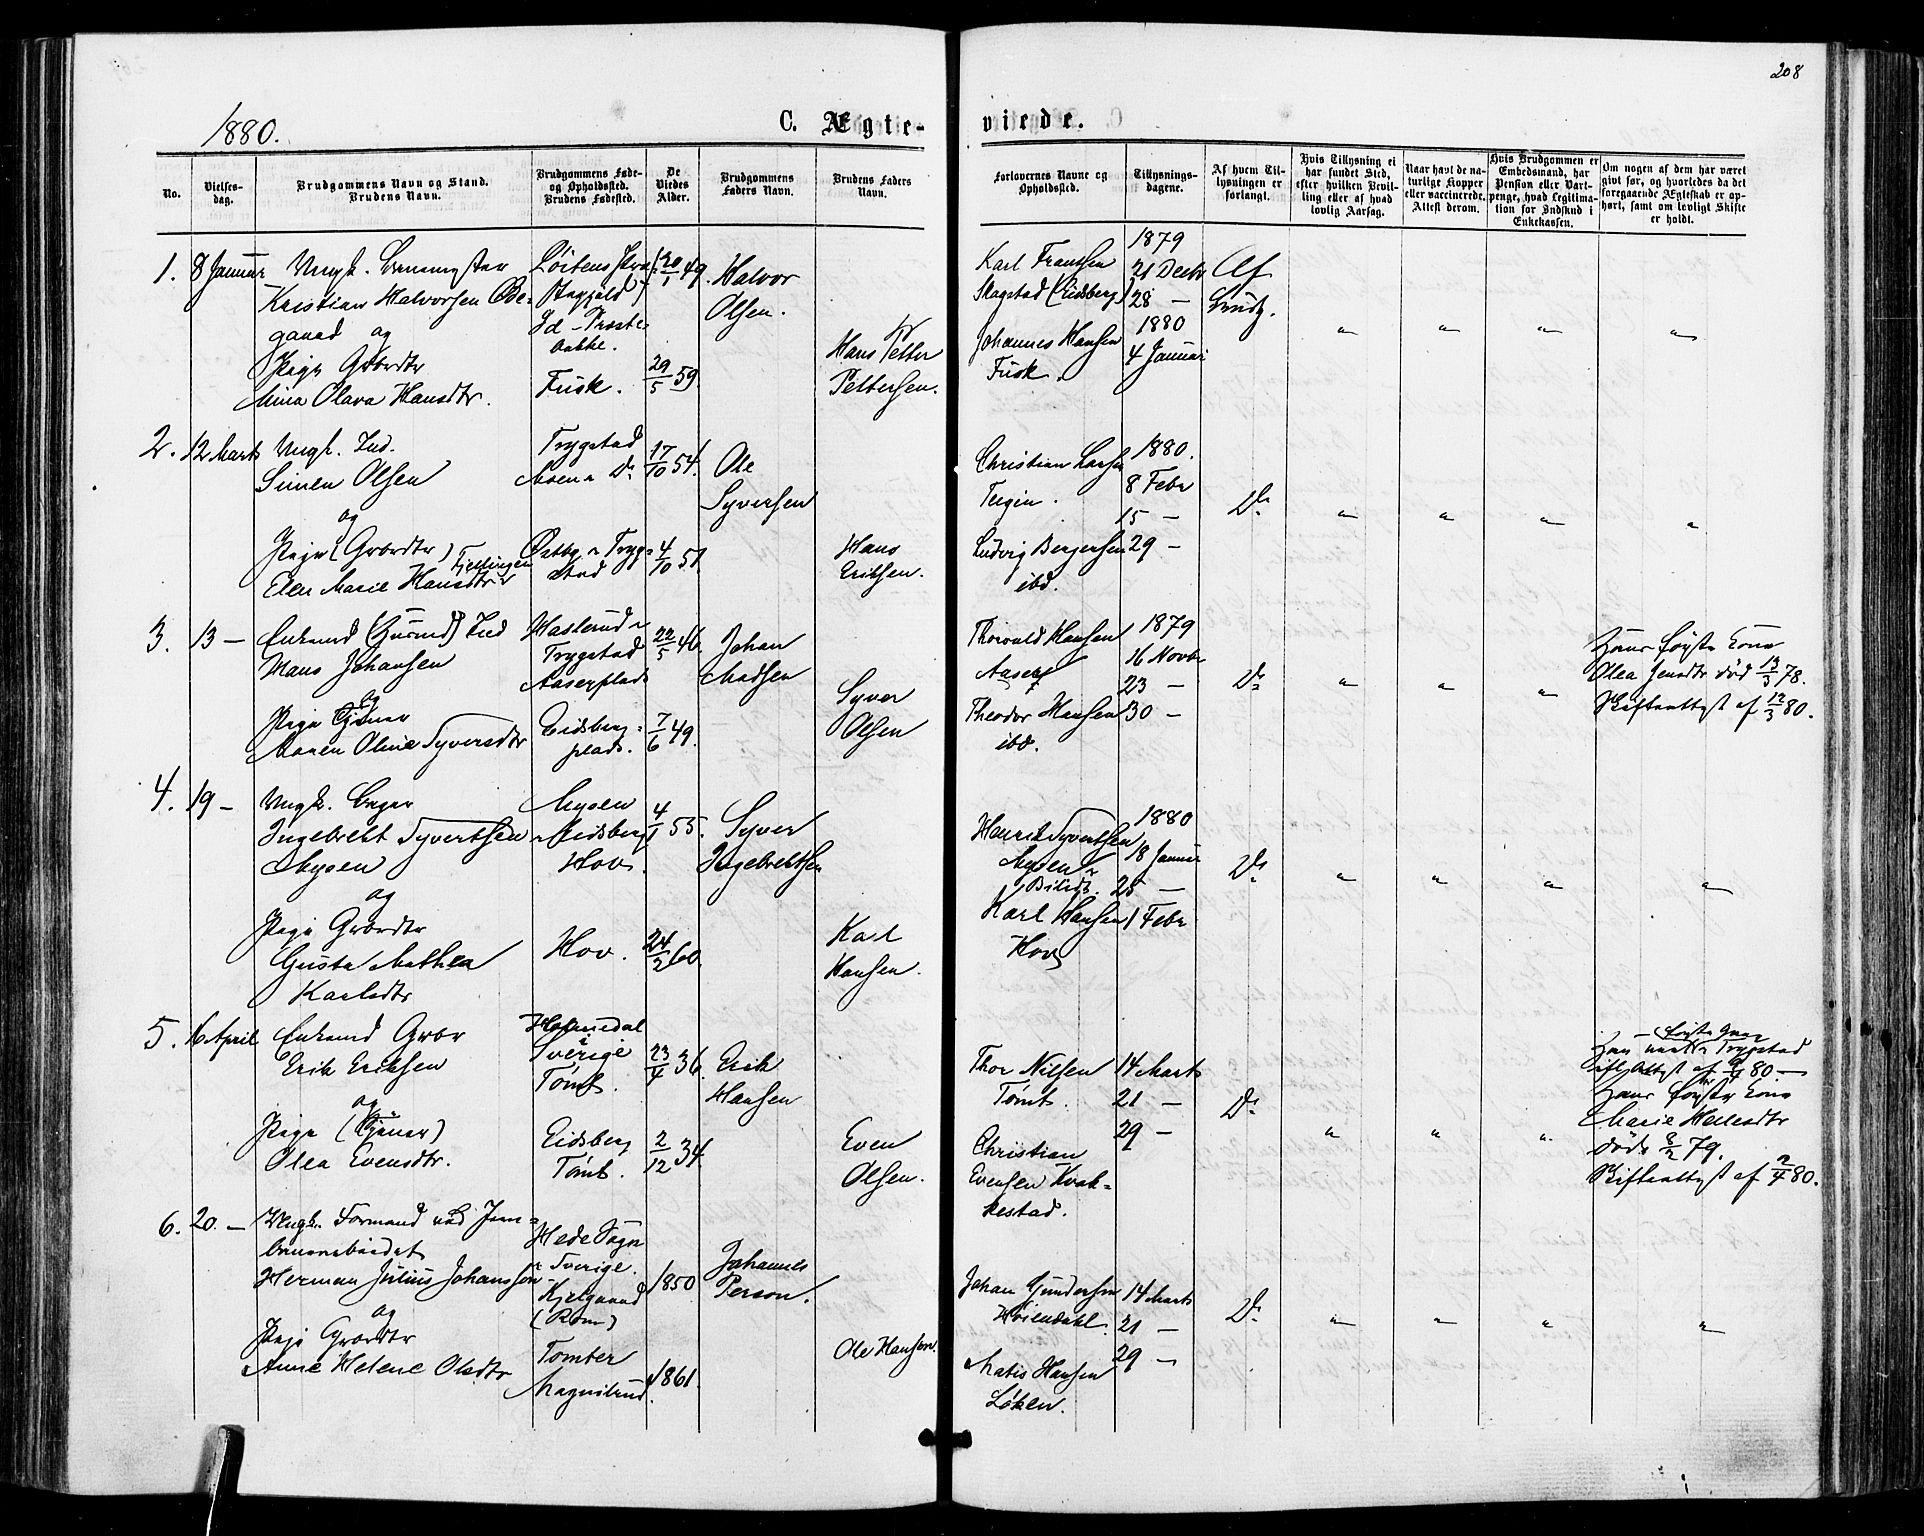 208
1880.
C. Ægte-
viede.
No.
Vielses-
dag.
Brudgommens Navn og Stand.
Brudens Navn.
Brudgommens Føde-
og Opholdssted.
Brudens Fødested.
De
Viedes
Alder.
Brudgommens
Faders Navn.
Brudens Faders
Navn.
Forlovernes Navne og
Opholdssted.
Tillysnings-
dagene.
Af hvem Til-
lysningen er
forlangt.
Hvis Tillysning ei
har fundet Sted,
efter hvilken Bevil-
ling eller af hvad
lovlig Aarsag.
Naar havt de na-
turlige Kopper
eller vaccinerede.
Attest derom.
Hvis Brudgommen er
Embedsmand, har
Pension eller Vart-
penge, hvad Legitima-
tion for Indskud i
Enkekassen.
Om nogen af dem har været
givt før, og hvorledes da det
foregaaende Ægteskab er op-
hørt, samt om lovligt Skifte
er holdt.
1. 8 Januar Ungk.
Kristian Halvorsen
gaard og
Pige Gbrdtr
Mina Olava Hansdtr.
Løitens
Id - Præste
bakke.
Fusk.
20/1 49.
29/5 59.
Halvor
Olsen.
Hans Petter
Pettersen.
Karl Frantsen
Slagstad (Eidsberg)
Johannes Hansen
Fusk.
1879
21 Decbr
28 —
1880
4 Januar
Af
Brudg.
" " " "
2. 12 Marts Ungk. Ind.
Simen Olsen
og
Pige (Gbrdtr)
Elen Marie Hansdtr
Trygstad
Moen Do
Østby Tryg=
stad
17/10 54.
4/10 51.
Ole
Syversen
Hans
Eriksen.
Christian Larsen
Teigen.
Ludvig Bergersen
ibd.
1880.
8 Febr
15 —
29 —
Do
" " " "
3. 13 — Enkemd (Husmd) Ind
Hans Johansen
og
Pige Tjener
Maren Oline Syversdtr
Haslerud
Trygstad
Aaserplads
Eidsberg=
plads.
22/5 46.
7/6 49.
Johan
Madsen
Syver
Olsen
Thorvald Hansen
Aaser
Theodor Hansen
ibd.
1879
16 Novbr
23 —
30 —
Do
" " "
Hans første Kone
Olea Jensdtr død 13/5 78.
Skifteattest af 12/3 80.
4. 19 — Ungk. Bager
Ingebrekt Syvertsen
Mysen
og
Pige Gbrdtr
Gusta Mathea
Karlsdtr
Mysen
Eidsberg
Hov.
Hov.
4/1 55.
24/2 60.
Syver
Ingebrektsen
Karl
Hansen.
Henrik Syvertsen
Mysen
Karl Hansen
Hov
1880
18 Januar
25 —
1 Febr
Do
" " " "
5. 16 April Enkemd Gbbr
Erik Eriksen
og
Pige (Tjener)
Olea Evensdtr.
Holmedal
i
Sverige
Tømt.
Eidsberg
Tømt.
23/4 36.
2/12 34.
Erik
Hansen
Even
Olsen.
Thor Nilsen
Tømt.
Christian
Evensen Kvak=
kestad.
14 Marts
21 —
29 —
Do
" " "
Trygstad
Hans første Kone
Marie
døde 8/2 79.
Skifteattest af 2/4 80.
6. 20. — Ungk. Formand ved Jern=
banearbeidet
Herman Julius Johansson
og
Pige Gbrdtr
Anne Helene Olsdtr
Hede Sogn
Sverige.
Tomter
1850
1861.
Johannes
Person.
Ole Hansen.
Johan Gundersen
Høiendahl.
Matis Hansen
Løken.
14 Marts
21 —
29 —
Do
" " " "